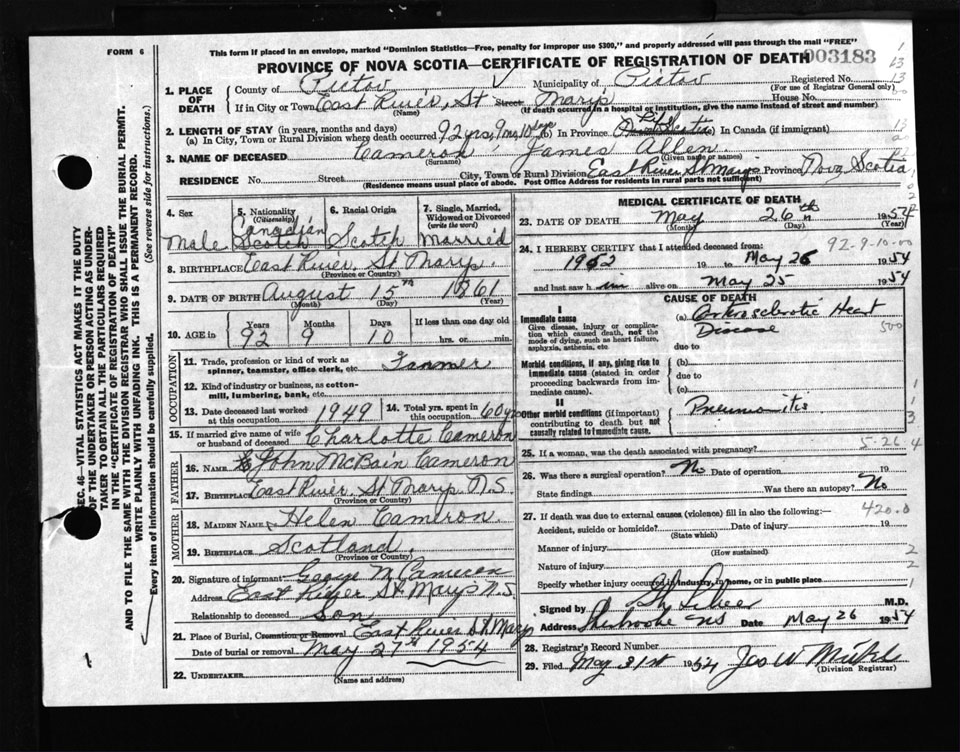 FORM 6
This form if placed in an envelope, marked "Dominion Statistics—Free, penalty for improper use $300," and properly addressed will pass through the mail "FREE"
PROVINCE OF NOVA SCOTIA—CERTIFICATE OF REGISTRATION OF DEATH
003183
1. PLACE OF DEATH
County of Pictou Municipality of Pictou Registered No. 13
(For use of Registrar General only)
If in City or Town East River, St Street Marys House No.
(Name) (If death occurred in a hospital or institution, give the name instead of street and number)
2. LENGTH OF STAY (in years, months and days)
(a) In City, Town or Rural Division where death occurred 92 yrs, 9 mo, 10 days (b) In Province Life Nova Scotia (c) In Canada (if immigrant)
3. NAME OF DECEASED Cameron, James Allen
(Surname) (Given name or names)
RESIDENCE No. Street City, Town or Rural Division East River St Marys Province Nova Scotia
(Residence means usual place of abode. Post Office Address for residents in rural parts not sufficient)
4. Sex Male
5. Nationality (Citizenship) Canadian Scotch
6. Racial Origin Scotch
7. Single, Married, Widowed or Divorced (write the word) Married
8. BIRTHPLACE East River, St Marys.
(Province or Country)
9. DATE OF BIRTH August 15th 1861
(Month) (Day) (Year)
10. AGE in Years 92 Months 9 Days 10 If less than one day old hrs. or min.
OCCUPATION
11. Trade, profession or kind of work as spinner, teamster, office clerk, etc. Farmer
12. Kind of industry or business, as cotton-mill, lumbering, bank, etc.
13. Date deceased last worked at this occupation 1949
14. Total yrs. spent in this occupation 60 yrs
15. If married give name of wife or husband of deceased Charlotte Cameron
FATHER
16. NAME John McBain Cameron
17. BIRTHPLACE East River, St Marys N.S
(Province or Country)
MOTHER
18. MAIDEN NAME Helen Cameron.
19. BIRTHPLACE Scotland.
(Province or Country)
20. Signature of informant George M Cameron
Address East River St Marys N.S.
Relationship to deceased Son
21. Place of Burial, Cremation or Removal East River St Marys
Date of burial or removal May 27th 1954
22. UNDERTAKER
(Name and address)
MEDICAL CERTIFICATE OF DEATH
23. DATE OF DEATH May 26th 1954
(Month) (Day) (Year)
24. I HEREBY CERTIFY that I attended deceased from 92-9-10-00
1952 19 to May 26 1954
and last saw him alive on May 25 1954
CAUSE OF DEATH
Immediate cause
Give disease, injury or complication which caused death, not the mode of dying, such as heart failure, asphyxia, asthenia, etc.
(a) Arteriosclerotic Heart Disease
500
due to
Morbid conditions, if any, giving rise to immediate cause (stated in order proceeding backwards from immediate cause).
(b)
due to
(c)
II
Other morbid conditions (if important) contributing to death but not causally related to immediate cause.
Pneumonitis
5-26-4
25. If a woman, was the death associated with pregnancy?
26. Was there a surgical operation? No Date of operation 19
State findings Was there an autopsy? No
27. If death was due to external causes (violence) fill in also the following:— 420.0
Accident, suicide or homicide? Date of injury 19
(State which)
Manner of injury
(How sustained)
Nature of injury
Specify whether injury occurred in industry, in home, or in public place
Signed by M.D.
Address Sherbrooke NS Date May 26 1954
28. Registrar's Record Number
29. Filed May 31st 1954 Jas W
(Division Registrar)
SEC. 46—VITAL STATISTICS ACT MAKES IT THE DUTY
OF THE UNDERTAKER OR PERSON ACTING AS UNDER-
TAKER TO OBTAIN ALL THE PARTICULARS REQUIRED
IN THE "CERTIFICATE OF REGISTRATION OF DEATH"
AND TO FILE THE SAME WITH THE DIVISION REGISTRAR WHO SHALL ISSUE THE BURIAL PERMIT.
WRITE PLAINLY WITH UNFADING INK. THIS IS A PERMANENT RECORD.
Every item of information should be carefully supplied. (See reverse side for instructions.)